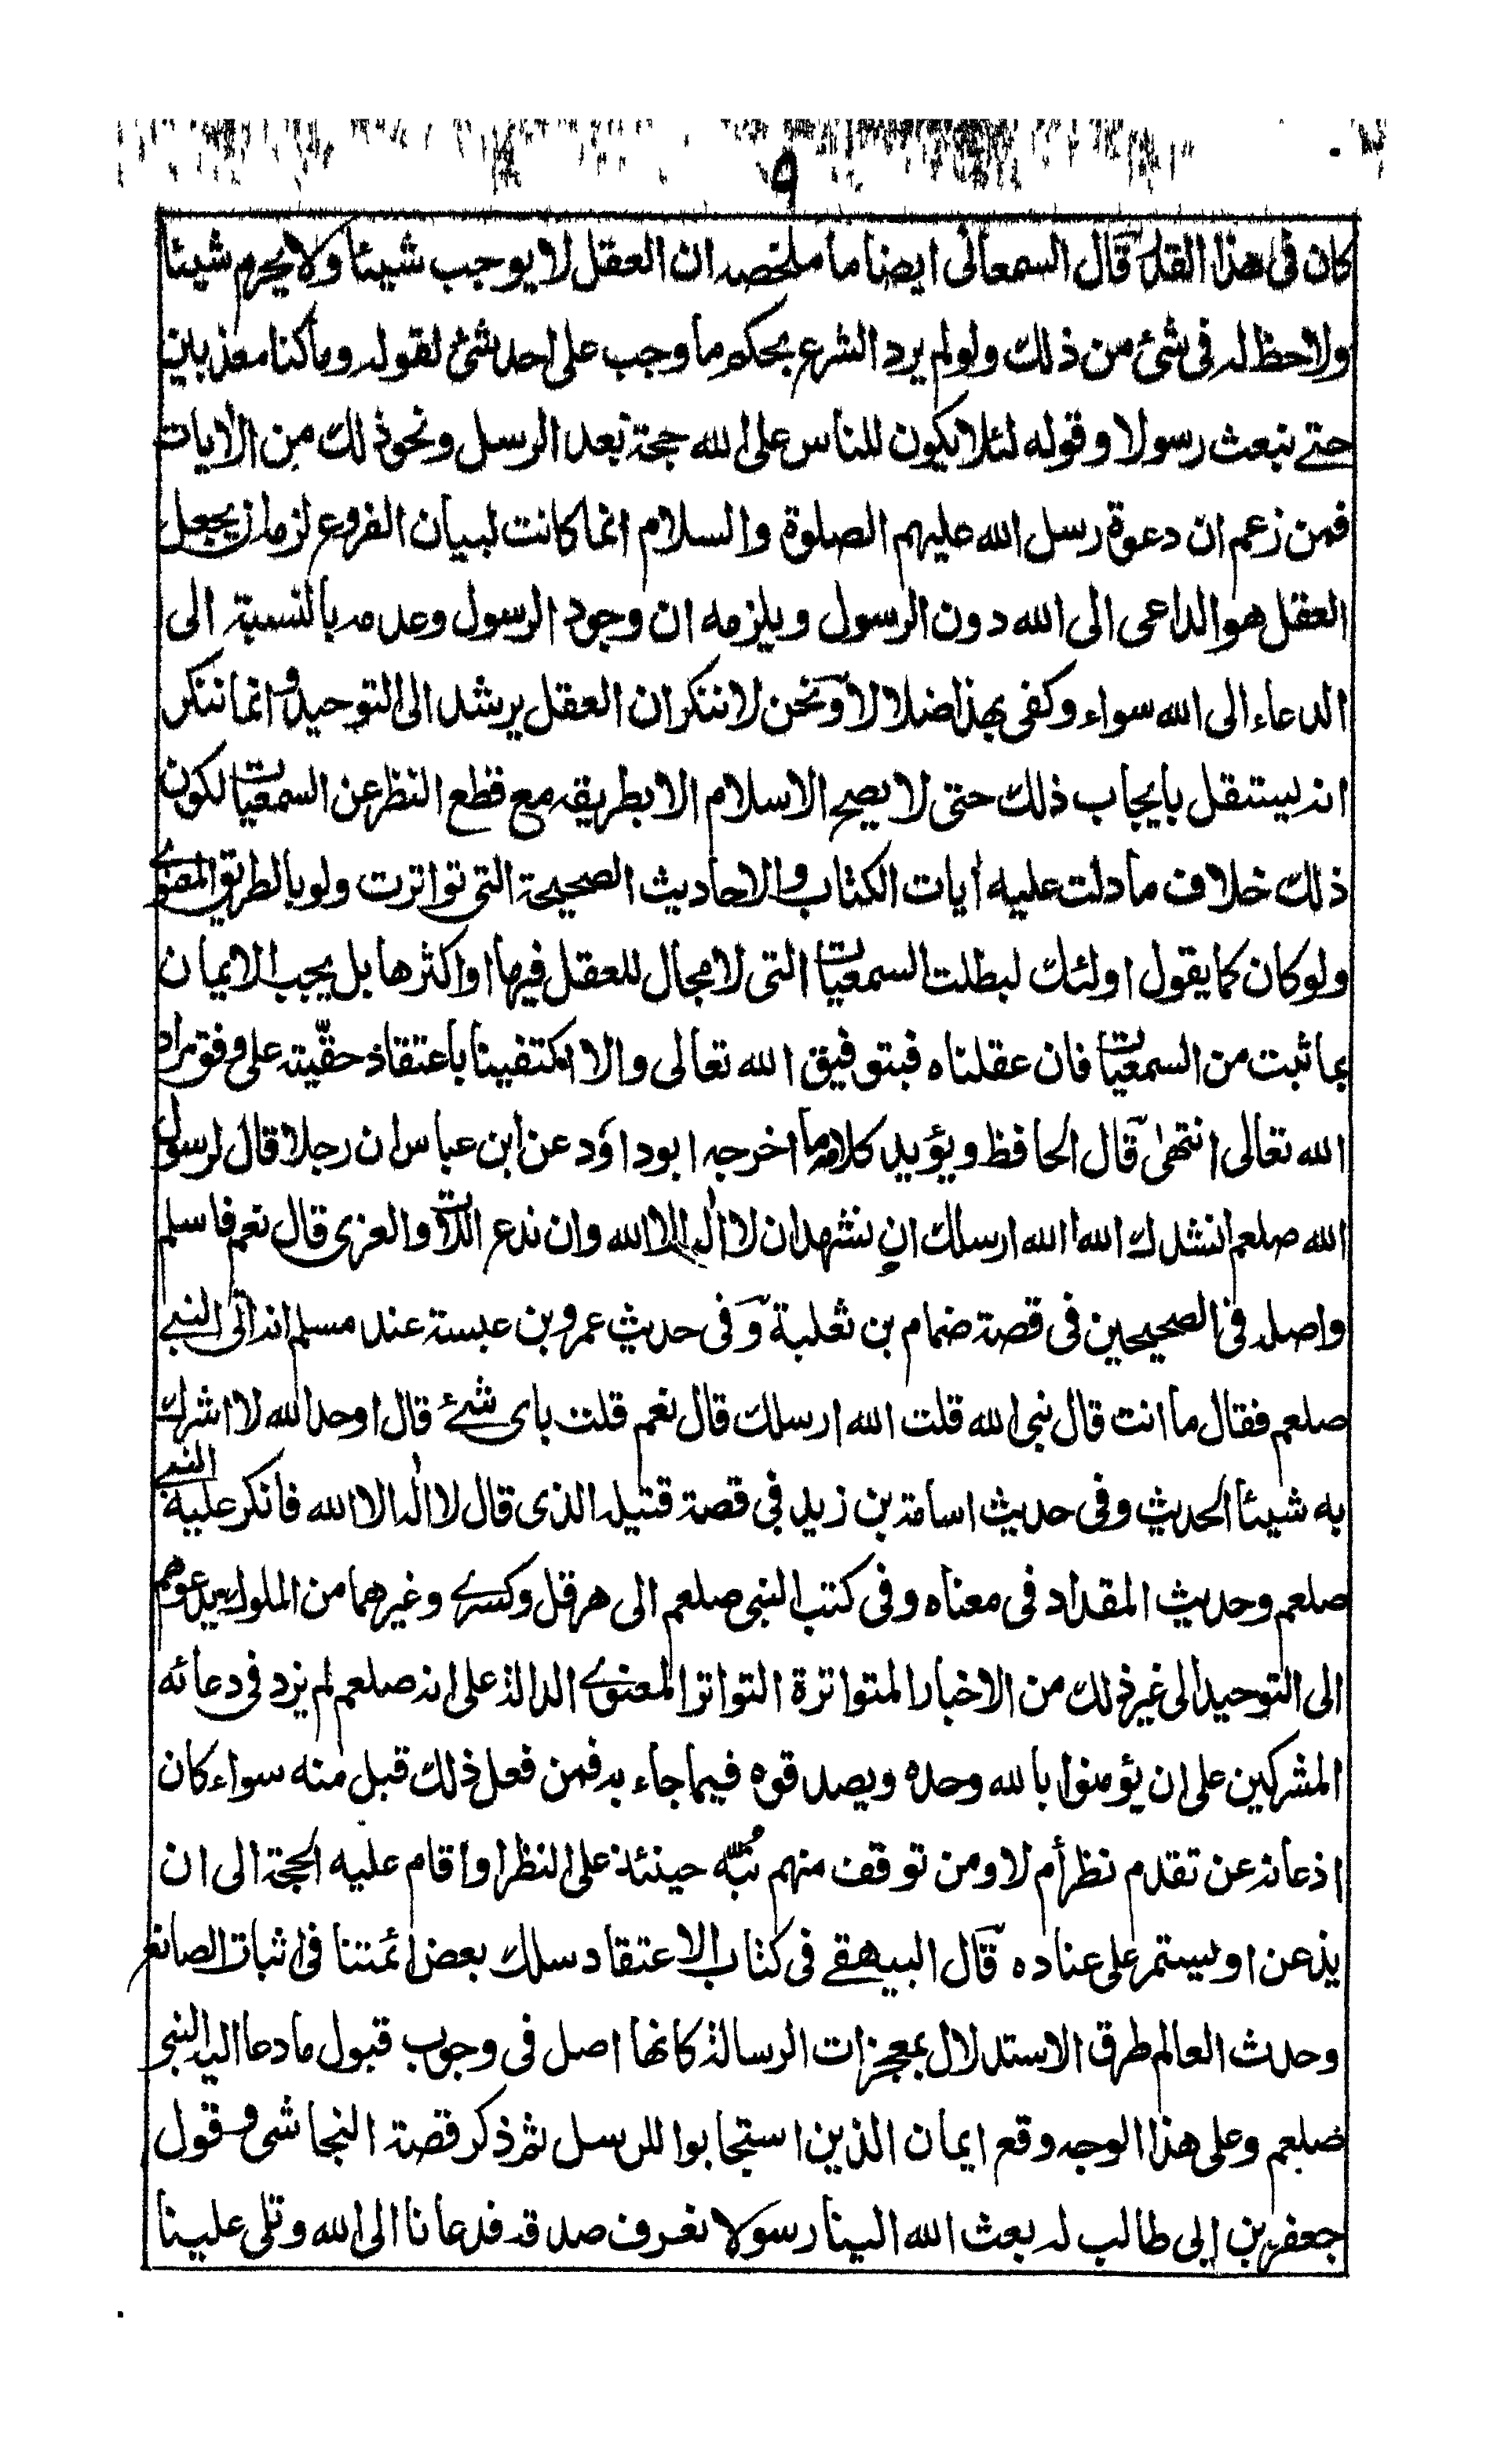 ٩
كان فى هذا القدر قال السمعانى ايضا ما ملخصه ان العقل لا يوجب شيئا ولا يحرم شيئا
ولاحظ له فى شئ من ذلك ولو لم يرد الشرع بحكم ما وجب على احد شئ لقوله وما كنا معذبين
حتے نبعث رسولا وقوله لئلا يكون للناس على الله حجة بعد الرسل ونحو ذلك من الايات
فمن زعم ان دعوة رسل الله عليهم الصلوة والسلام انما كانت لبيان الفروع لزمه ان يجعل
العقل هو الداعى الى الله دون الرسول ويلزمه ان وجود الرسول وعدمه بالنسبة الى
الدعاء الى الله سواء وكفى بهذا ضلالا ونحن لا ننكر ان العقل يرشد الى التوحيد وانما ننكر
انه يستقل بايجاب ذلك حتى لا يصح الاسلام الا بطريقه مع قطع النظر عن السمعيات لكون
ذلك خلاف ما دلت عليه ايات الكتاب والاحاديث الصحيحة التى تواترت ولو بالطريق المعنوى
ولو كان كما يقول اولئك لبطلت السمعيات التى لا مجال للعقل فيها او اكثرها بل يجب الايمان
بما ثبت من السمعيات فان عقلناه فبتوفيق الله تعالى والا اكتفينا باعتقاد حقّيته على وفق مراد
الله تعالى انتهى قال الحافظ ويؤيد كلامه ما اخرجه ابو داود عن ابن عباس ان رجلا قال لرسول
الله صلعم انشدك الله آلله ارسلك ان نشهد ان لا اله الا الله وان ندع اللات والعزى قال نعم فاسلم
واصله فى الصحيحين فى قصة ضمام بن ثعلبة وفى حديث عمرو بن عبسة عند مسلم انه اتى النبے
صلعم فقال ما انت قال نبى الله قلت آلله ارسلك قال نعم قلت باى شئ قال اوحد الله لا اشرك
به شيئا الحديث وفى حديث اسامة بن زيد فى قصة قتيله الذى قال لا اله الا الله فانكر عليه النبے
صلعم وحديث المقداد فى معناه وفى كتب النبى صلعم الى هرقل وكسرے وغيرهما من الملوك يدعوهم
الى التوحيد الى غير ذلك من الاخبار المتواترة التواتر المعنوے الدالة على انه صلعم لم يزد فى دعائه
المشركين على ان يؤمنوا بالله وحده ويصدقوه فيما جاء به فمن فعل ذلك قبل منه سواء كان
اذعانه عن تقدم نظر أم لا ومن توقف منهم نُبّه حينئذ على النظر او اقام عليه الحجة الى ان
يذعن او يستمر على عناده قال البيهقے فى كتاب الاعتقاد سلك بعض ائمتنا فى اثبات الصانع
وحدث العالم طرق الاستدلال بمعجزات الرسالة كانها اصل فى وجوب قبول ما دعا اليه النبى
صلعم وعلى هذا الوجه وقع ايمان الذين استجابوا للرسل ثم ذكر قصة النجاشى وقول
جعفر بن ابى طالب له بعث الله الينا رسولا نعرف صدقه فدعانا الى الله وتلى علينا